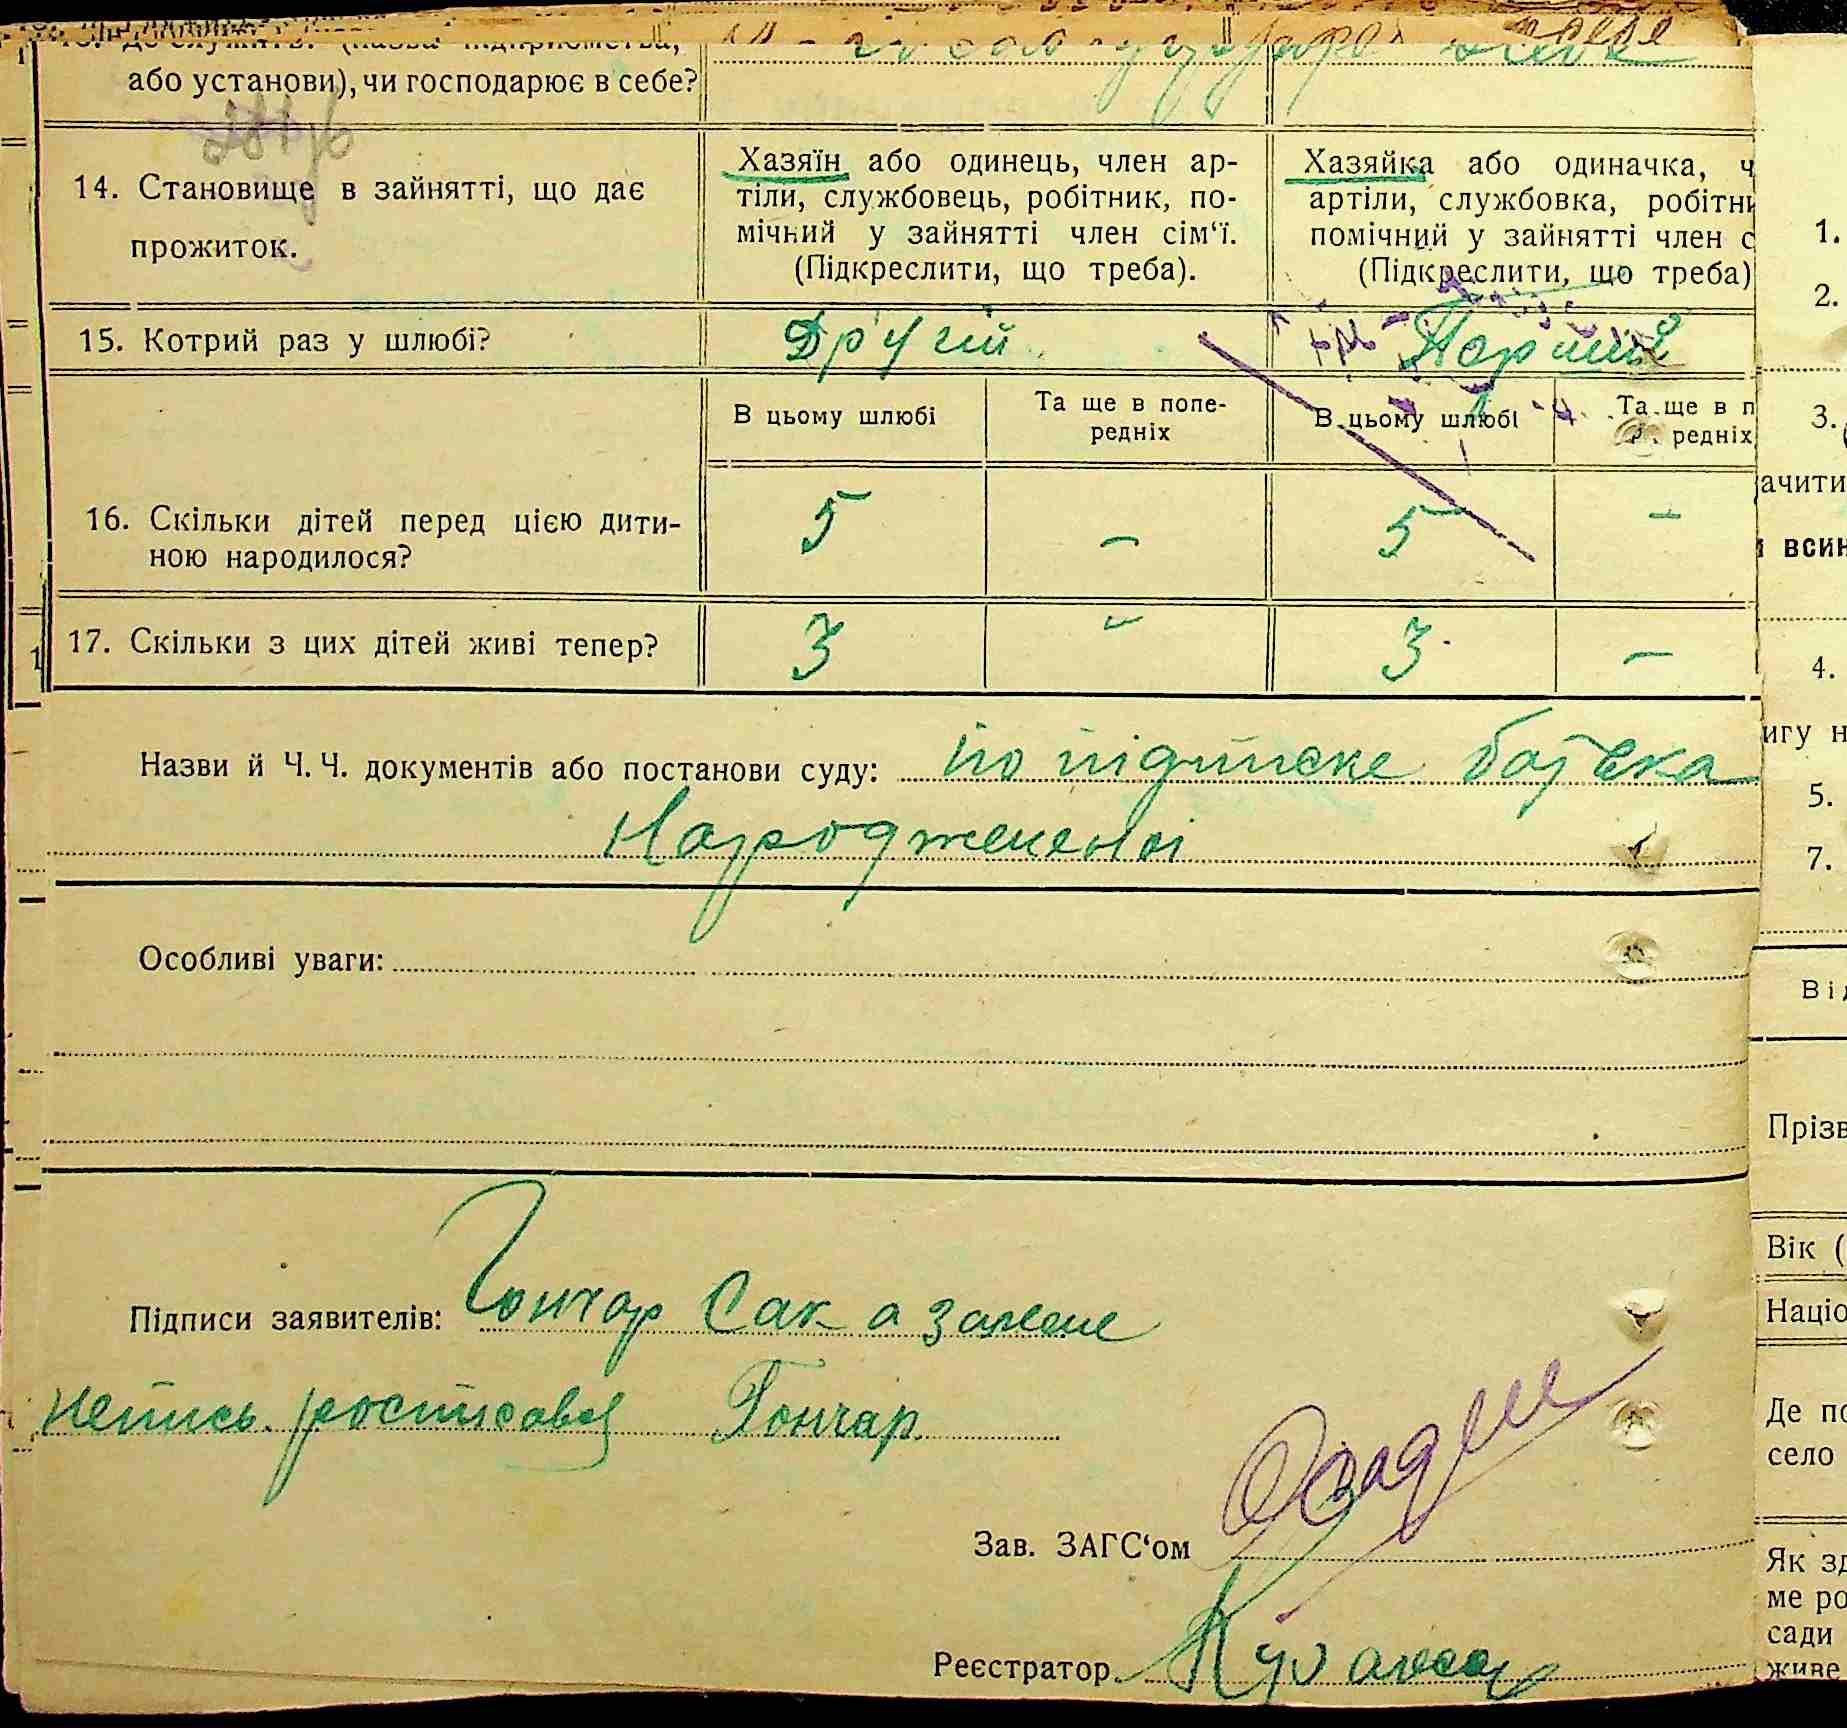 або установи), чи господарює в себе?
14. Становище в зайнятті, що дає
прожиток.
Хазяїн або одинець, член ар-
тіли, службовець, робітник, по-
мічний у зайнятті член сім‘ї.
(Підкреслити, що треба).
Хазяйка або одиначка, ч
артіли, службовка, робітни
помічний у зайнятті член с
(Підкреслити, що треба)
15. Котрий раз у шлюбі?
Другий
Перший
В цьому шлюбі
Та ще в попе-
редніх
В цьому шлюбі
Та ще в п
редніх
16. Скільки дітей перед цією дити-
ною народилося?
5 – 5 –
17. Скільки з цих дітей живі тепер?
3 – 3 –
Назви й Ч. Ч. документів або постанови суду: по підписке батька
Народженоі
Особливі уваги:
Підписи заявителів: Гончар Сак а за
непись. росписався Гончар
Зав. ЗАГС‘ом
Реєстратор
1.
2.
3.
ачити
всин
4.
игу н
5.
7.
Від
Прізв
Вік (
Націо
Де по
село
Як зд
ме ро
сади
живе